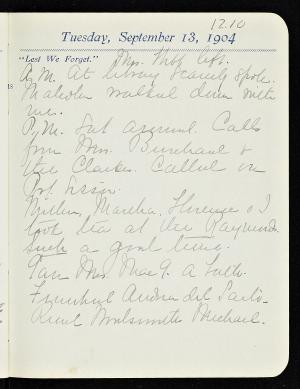 12.10
Tuesday, September 13, 1904
"Lest We Forget." Mrs. left.
A.M. At library scarcely spoke.
Malcolm walked down with
me.
P.M. Sat around. Calls
from Mrs. &
the Clarkes. Called on
Prof.
Mother, Martha, Florence & I
took tea at the Raymonds
such a good time.
Mrs. Mac G. a
Finished Andrea del Sarto.
Read Michael.